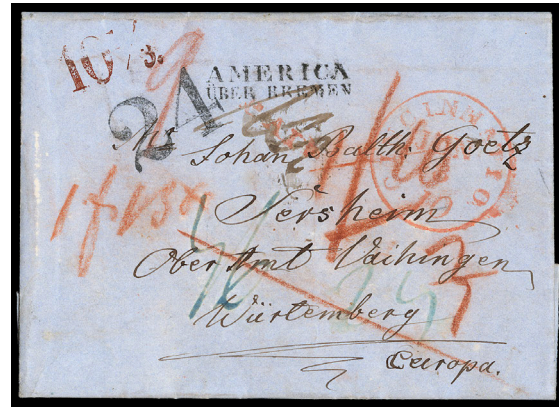 10 1/3.
24
AMERICA
ÜBER BREMEN
CINNATI O
Johan Balth: Goetz
Sersheim
Ober Amt Vaihingen
Würtemberg
Europa.